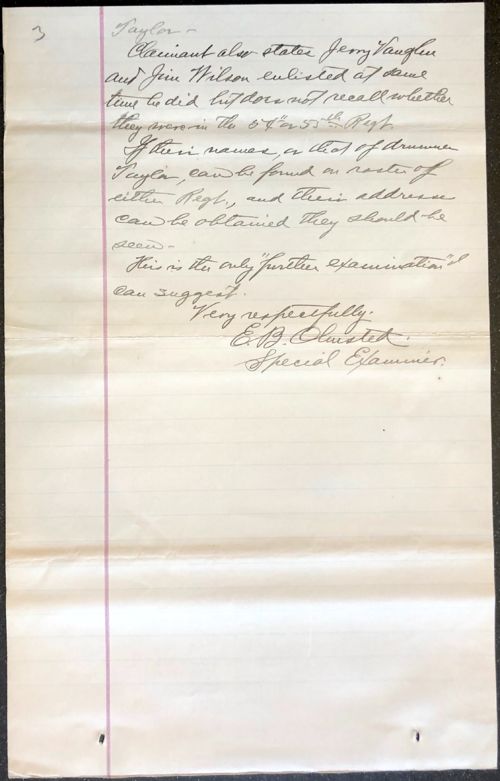 3
Taylor -
Claimant also states Jerry Vaughn
and Jim Wilson enlisted at same
time he did but does not recall whether
they were in the 54" or 55th Regt
If their names, or that of drummer
Taylor, can be found on roster of
either Regt., and their addresses
can be obtained they should be
seen -
This is the only "further examination" I
can suggest.
Very respectfully.
E. B. Olmsted.
Special Examiner.